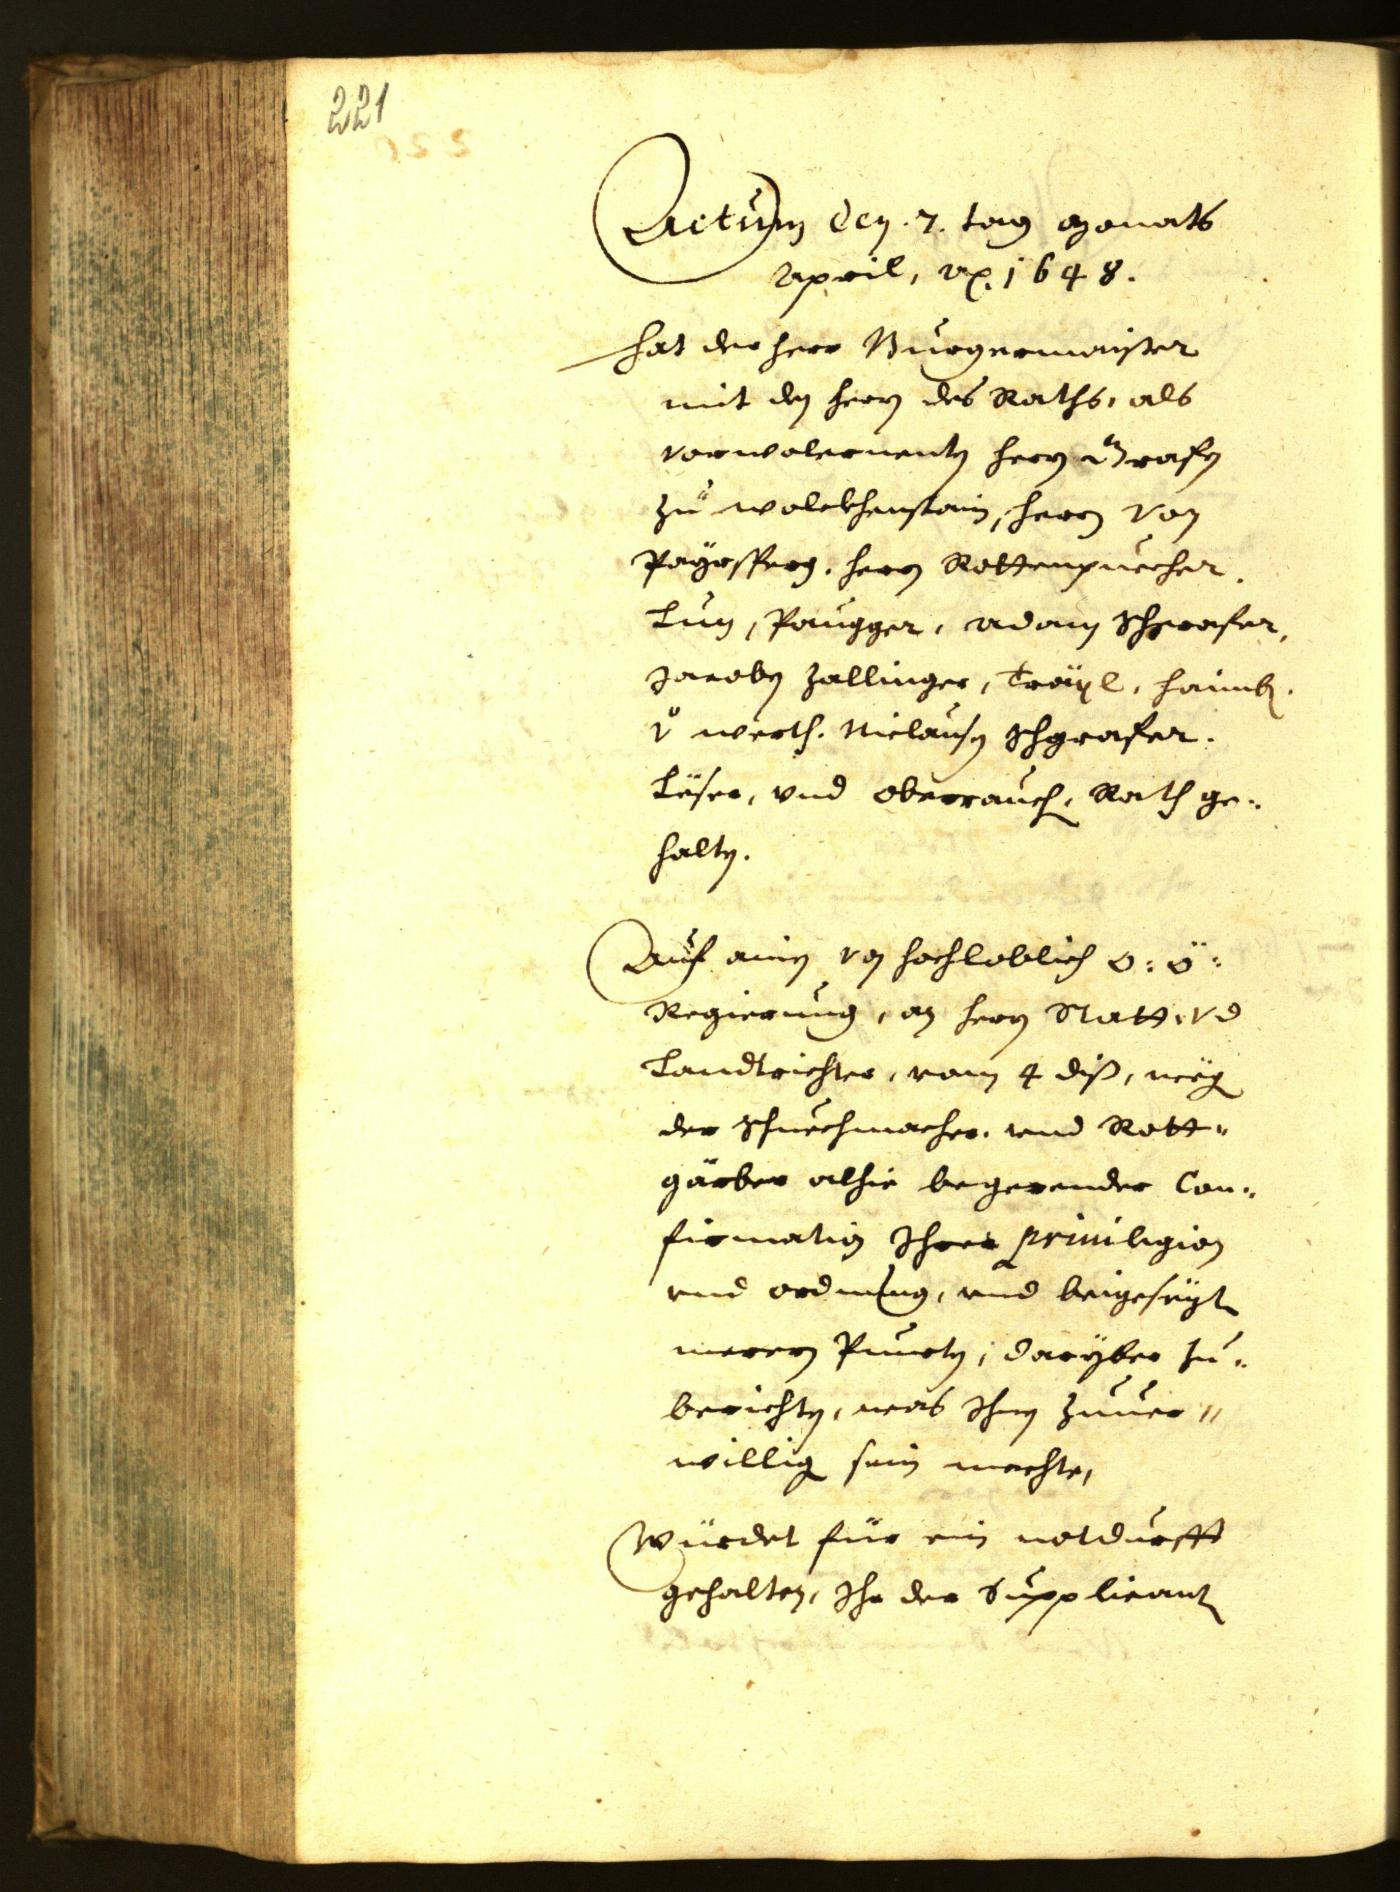 221
Actum den .7. tag Monats
April, Aõ. 1648.
Hat der herr Burgermaister
mit den herrn des Raths, als
herrn Grafen
zu Wolckhenstain, herrn von
Payrsperg, herrn Rottenpuecher,
Lun, Paugger, Adam Schgrafer,
Jacoben Zallinger, Troyl, haimbl.
v werth. Niclausen Schgrafer.
Leser, vnd Oberrauch, Rath ge-
halten.
Auf ainen von hochloblich O: Ö:
Regierung, an herrn Statt vnd
Landtrichter, vom 4 diß, weg
der Schuechmacher vnd Rott-
gärber alhie begerender Con-
firmation Ihrer priuilegien
vnd ordnung, vnd beigesezt
merern Puncten, daryber zu-
berichten, was Ihnen zuuer-
willig sein mechte,
Würdet für ein notdurfft
gehalten, Ihr der Supplicant